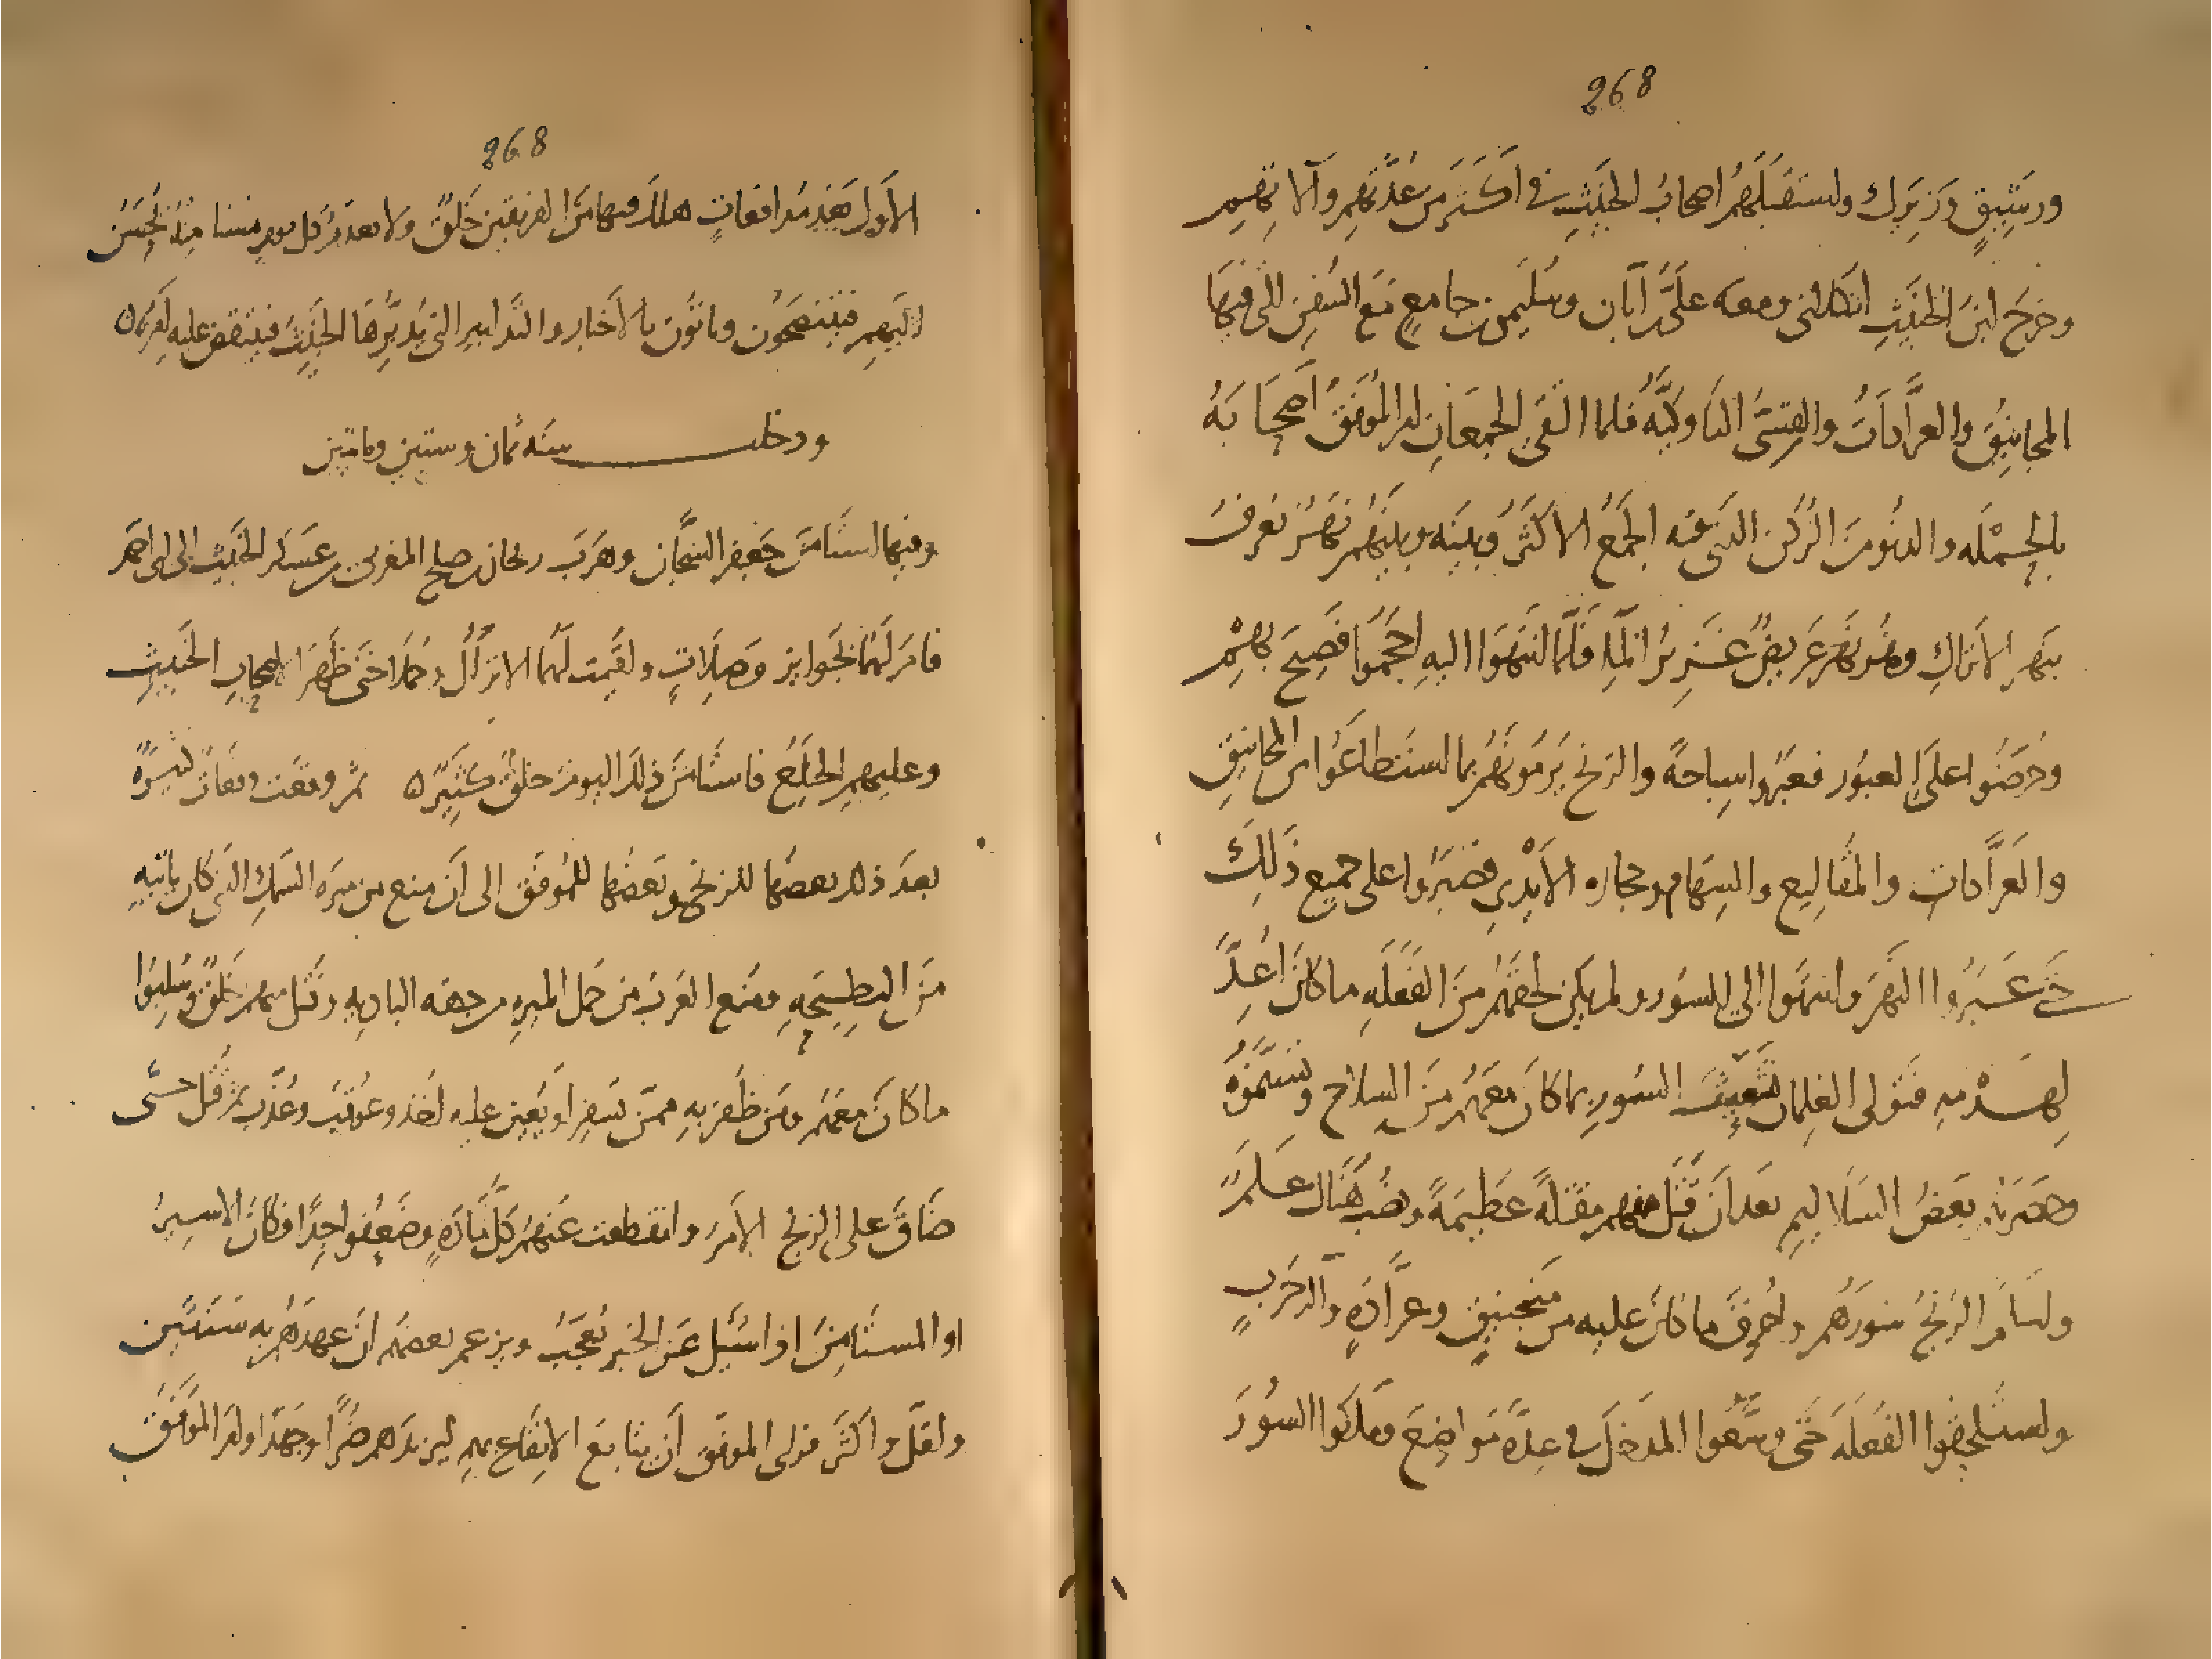 268
ورشيق وزيرك واستقبلهم اصحاب الخبيث في اكثر من عدتهم وآلاتهم
وخرج ابن الخبيث انكلاني ومعه علي بن ابان وسليمن بن جامع مع السفن التي فيها
المجانيق والعرادات والقسي الناوكية فلما التقى الجمعان امر الموفق اصحابه
بالحملة والدنو من الركن الذي فيه الجمع الاكثر وبينه وبينهم نهر يعرف
بنهر الاتراك وهو نهر عريض غزير الماء فلما انتهوا اليه احجموا فصيح بهم
وحرضوا على العبور فعبروا سباحة والزنج يرمونهم بما استطاعوا من المجانيق
والعرادات والمقاليع والسهام وحجارة الايدي فصبروا على جميع ذلك
حتى عبروا النهر وانتهوا الى السور ولم يكن لحقهم من الفعلة ما كان اعد
لهدمه فتولى الغلمان تشعيث السور بما كان معهم من السلاح وتسنموه
وحضرته بعض السلاليم بعد ان قتل منهم مقتلة عظيمة ونصب هناك علم
واسلم الزنج سورهم واحرق ما كان عليه من منجنيق وعرادة وآلة حرب
واستلحقوا الفعلة حتى وسعوا المدخل في عدة مواضع وملكوا السور
268
الاول بعد مدافعات هلك فيها من الفريقين خلق ولا يعدم كل يوم مستامنة يحسن
اليهم فيتنصحون وياتون بالاخبار والتدابير التي يدبرها الخبيث فينتقض عليه امره
ودخلت سنة ثمان وستين ومايتين
وفيها استامن جعفر السجان وهرب ريحان بن صلح المغربي من عسكر الخبيث الى ابي احمد
فامر لهما بجوايز وصلات واقيمت لهما الانزال وحملا حتى ظهرا لاصحاب الخبيث
وعليهم الخلع فاستامن ذلك اليوم خلق كثير ثم وقعت وقعات كثيرة
بعد ذلك بعضها للزنج وبعضها للموفق الى ان منع من ميرة السمك الذي كان ياتيه
من البطيحة ومنع العرب من حمل الميرة من جهة البادية وقتل منهم خلق وسلبوا
ما كان معهم ومن ظفر به ممن سفر او يعين عليه اخذ وعوقب وعذب ثم قتل حتى
ضاق على الزنج الامر وانقطعت عنهم كل مادة وضعفوا جدا فكان الاسير
او المستامن اذا سئل عن الخبز تعجب ويزعم بعضهم ان عهدهم به سنتين
واقل واكثر فراى الموفق ان يتابع الايقاع بهم ليزيدهم ضرا وجهدا وامر الموفق